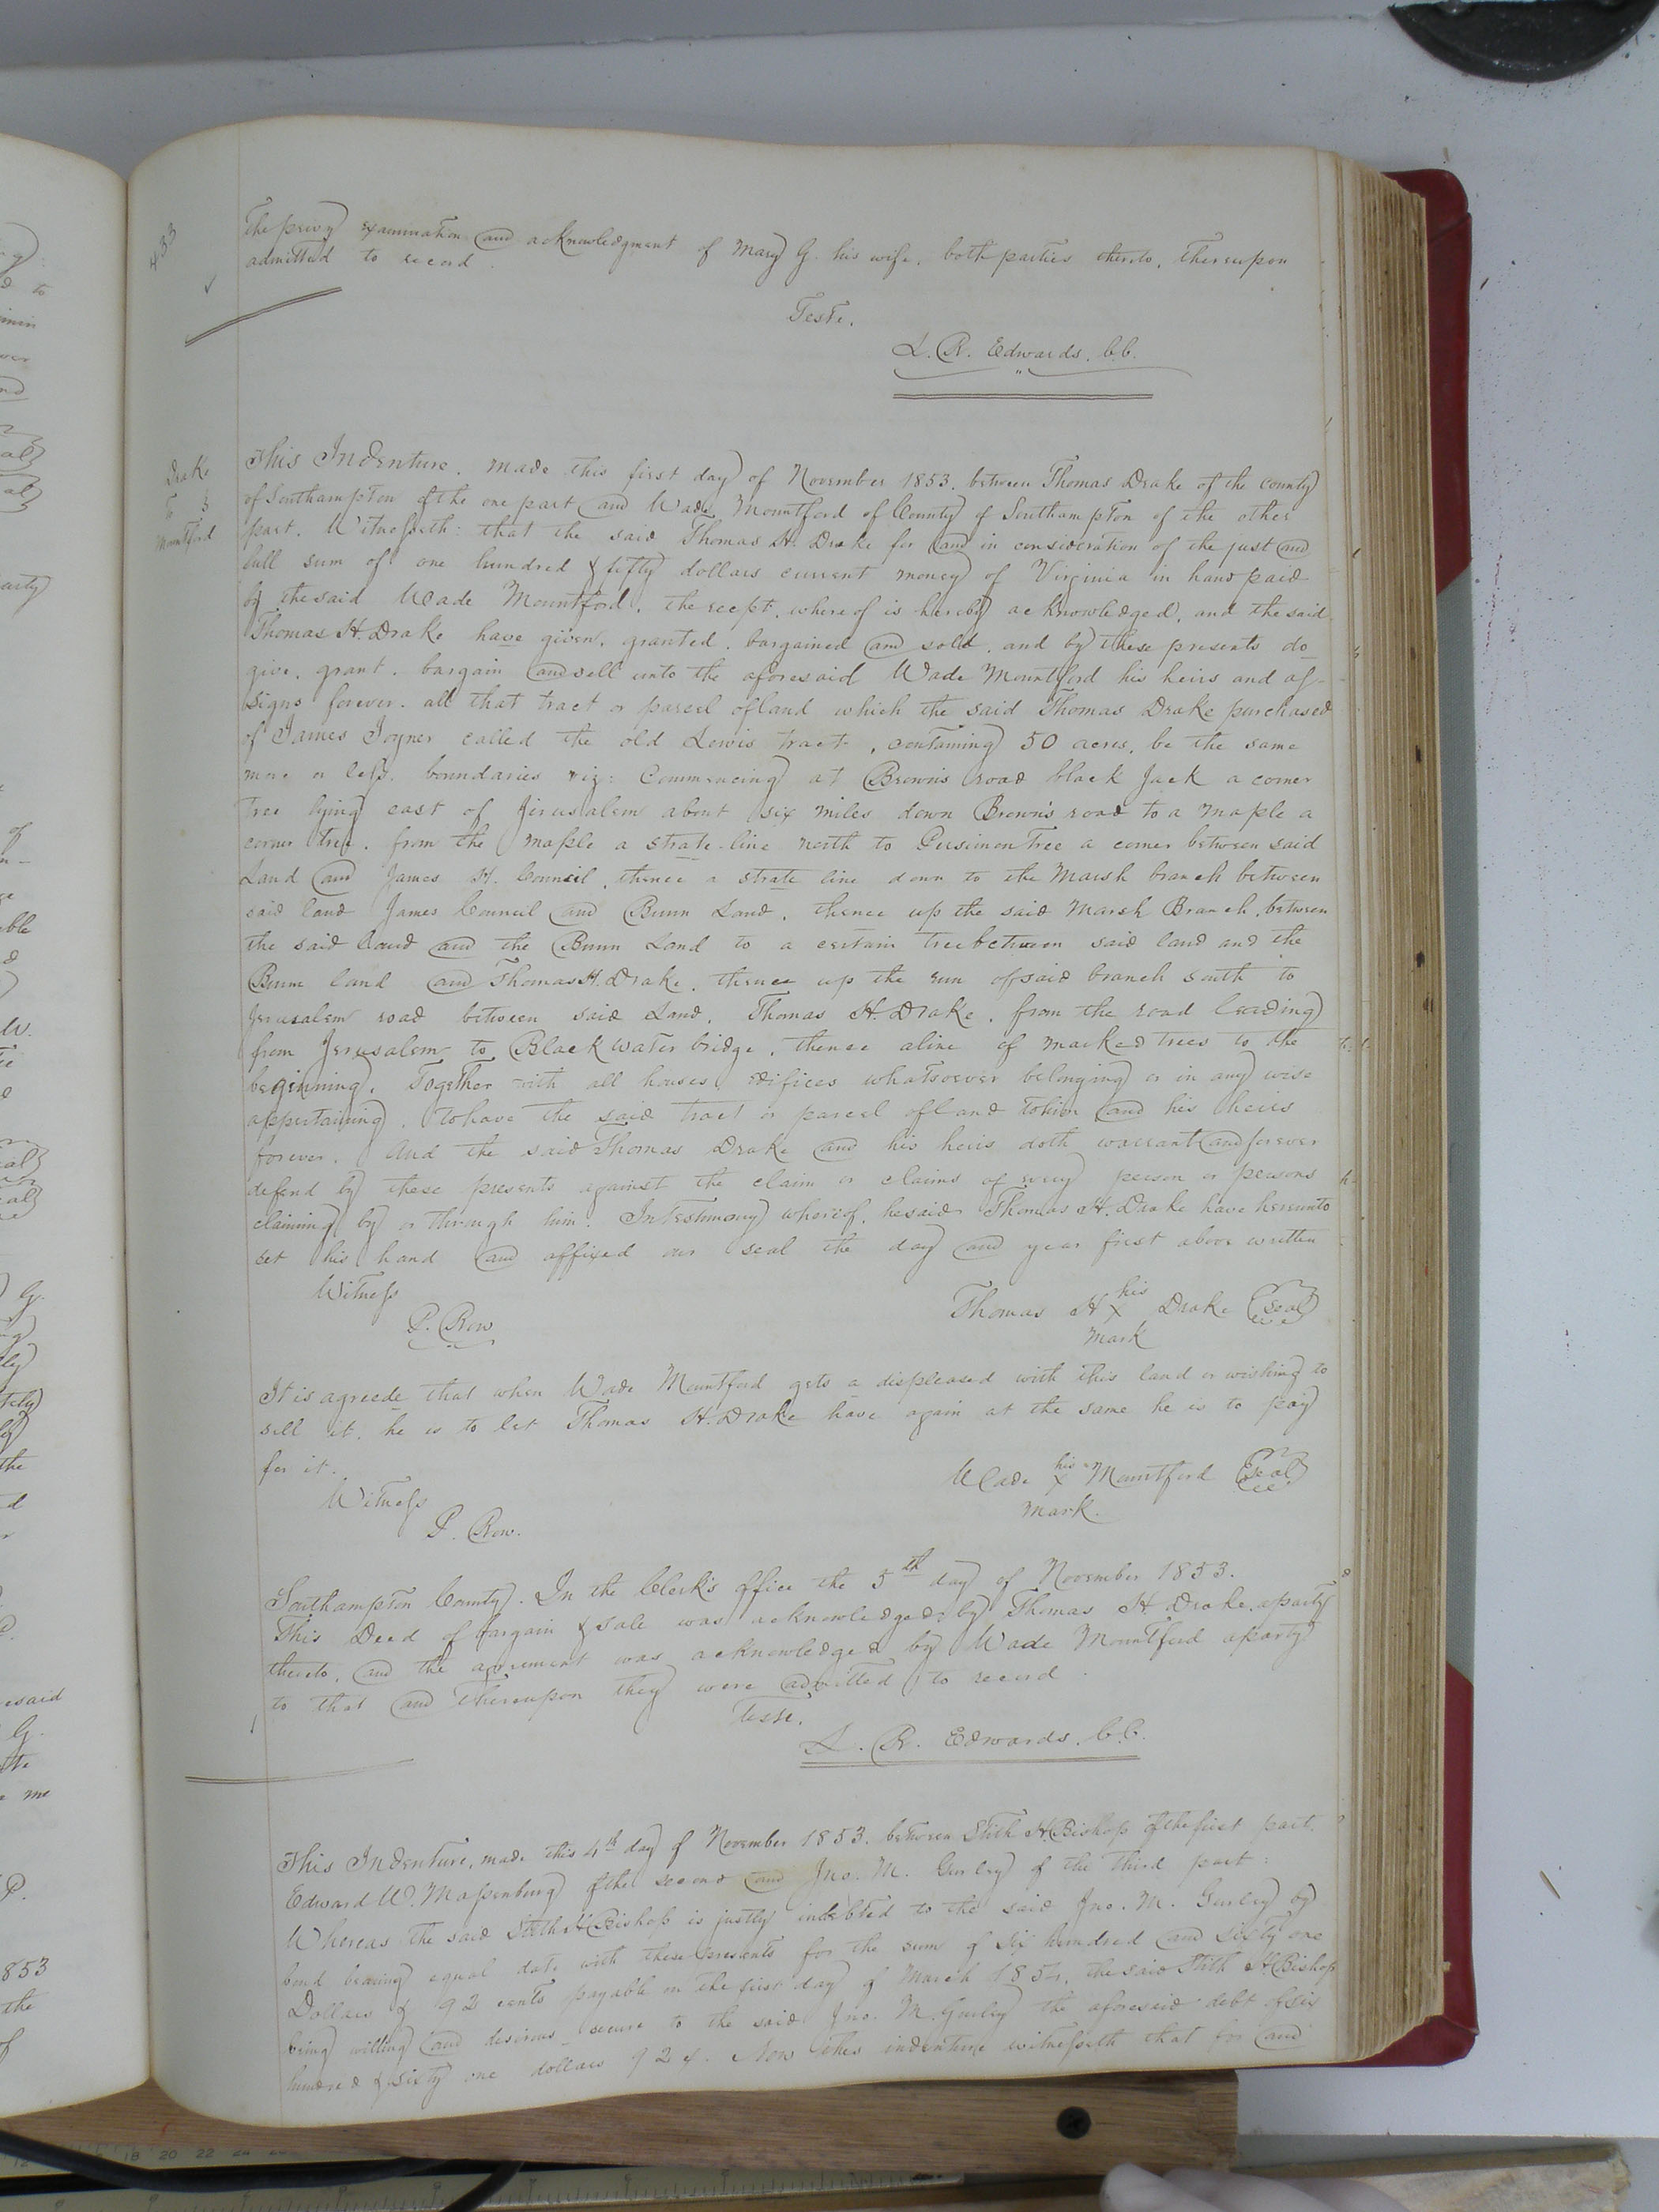 433
the privy examination and acknowledgment of Mary G. his wife, both parties thereto, thereupon
admitted to record.
Teste,
L. R. Edwards, C.C.
Drake
To
Mountford
This Indenture, made this first day of November 1853. between Thomas Drake of the county
of Southampton of the one part and Wade Mountford of County of Southampton of the other
part. Witnesseth: that the said Thomas H. Drake for and in consideration of the just and
full sum of one hundred & fifty dollars current money of Virginia in hand paid
by the said Wade Mountford, the recept, whereof is hereby acknowledged, and the said
Thomas H. Drake have given, granted, bargained and sold, and by these presents do
give, grant, bargain and sell unto the aforesaid Wade Mountford his heirs and as-
signs forever. all that tract or parcel of land which the said Thomas Drake purchased
of James Joyner called the old Lewis tract, containing 50 acres, be the same
more or less. boundaries viz: Commencing at Brown's road black Jack a corner
tree lying east of Jerusalem about six miles down Brown's road to a maple a
corner tree. from the maple a strate line north to Persimon Tree a corner between said
Land and James H. Council, thence a strate line down to the Marsh branch between
said land James Council and Bunn Land, thence up the said Marsh Branch, between
the said land and the Bunn Land to a certain tree between said land and the
Bunn land and Thomas H. Drake, thence up the run of said branch south to
Jerusalem road between said Land, Thomas H. Drake, from the road leading
from Jerusalem to Black water bridge, thence a line of marked trees to the
beginning. Together with all houses, edifices whatsoever belonging or in any wise
appertaining. To have the said tract or parcel of land to him and his heirs
forever. And the said Thomas Drake and his heirs doth warrant and forever
defend by these presents against the claim or claims of every person or persons
claiming by or through him. In Testimony whereof, he said Thomas H. Drake have hereunto
set his hand and affixed our seal the day and year first above written
Witness
P. Row
Thomas H his x Drake Seal
mark
It is agreede that when Wade Mountford gets a displeased with this land or wishing to
sell it. he is to let Thomas H. Drake have again at the same he is to pay
for it.
Wade his x Mountford Seal
mark.
Witness
P. Row.
Southampton County. In the Clerk's office the 5th day of November 1853.
This Deed of bargain & sale was acknowledged by Thomas H. Drake, a party
thereto, and the agreement was acknowledged by Wade Mountford a party
to that and thereupon they were admitted to record.
Teste,
L. R. Edwards, C.C.
This Indenture, made this 4th day of November 1853. between Stith H. Bishop of the first part.
Edward W. Massenburg of the second and Jno. M. Gurley of the third part:
Whereas the said Stith H Bishop is justly indebted to the said Jno. M. Gurley by
bond bearing equal date with these presents for the sum of Six hundred and Sixty one
Dollars & 92 cents payable on the first day of March 1854. the said Stith H. Bishop
being willing and desirous secure to the said Jno. M. Gurley the aforesaid debt of six
hundred & sixty one dollars 92 c. Now this indenture witnesseth that for and